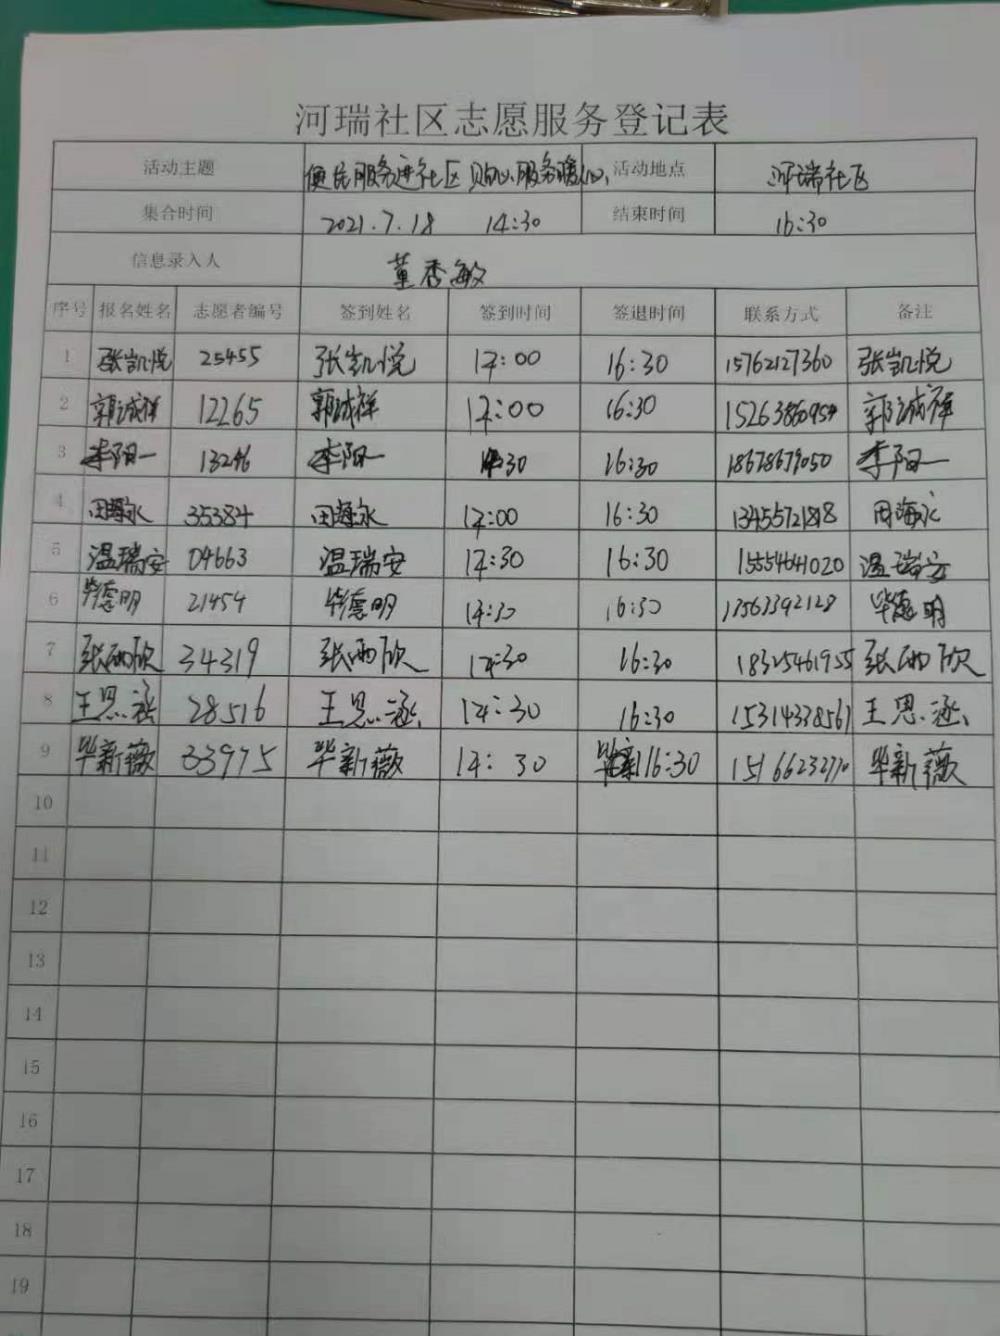 河瑞社区志愿服务登记表
活动主题 便民服务进社区 贴心服务暖人心 活动地点 河瑞社区
集合时间 2021.7.18 14:30 结束时间 16:30
信息录入人 董香敏
序号 报名姓名 志愿者编号 签到姓名 签到时间 签退时间 联系方式 备注
1 张凯悦 25455 张凯悦 14:00 16:30 15762127360 张凯悦
2 郭诚祥 12265 郭诚祥 14:00 16:30 郭诚祥
3 李阳一 13246 李阳一 16:30 18678679050 李阳一
4 田海永 35384 田海永 14:00 16:30 田海永
5 温瑞安 04663 温瑞安 14:30 16:30 15554641020 温瑞安
6 毕德明 21454 毕德明 14:30 16:30 13563392128 毕德明
7 张雨欣 34319 张雨欣 14:30 16:30 18325461955 张雨欣
8 王思涵 28516 王思涵 14:30 16:30 15314338561 王思涵
9 毕新薇 33975 毕新薇 14:30 16:30 15166232770 毕新薇
10
11
12
13
14
15
16
17
18
19